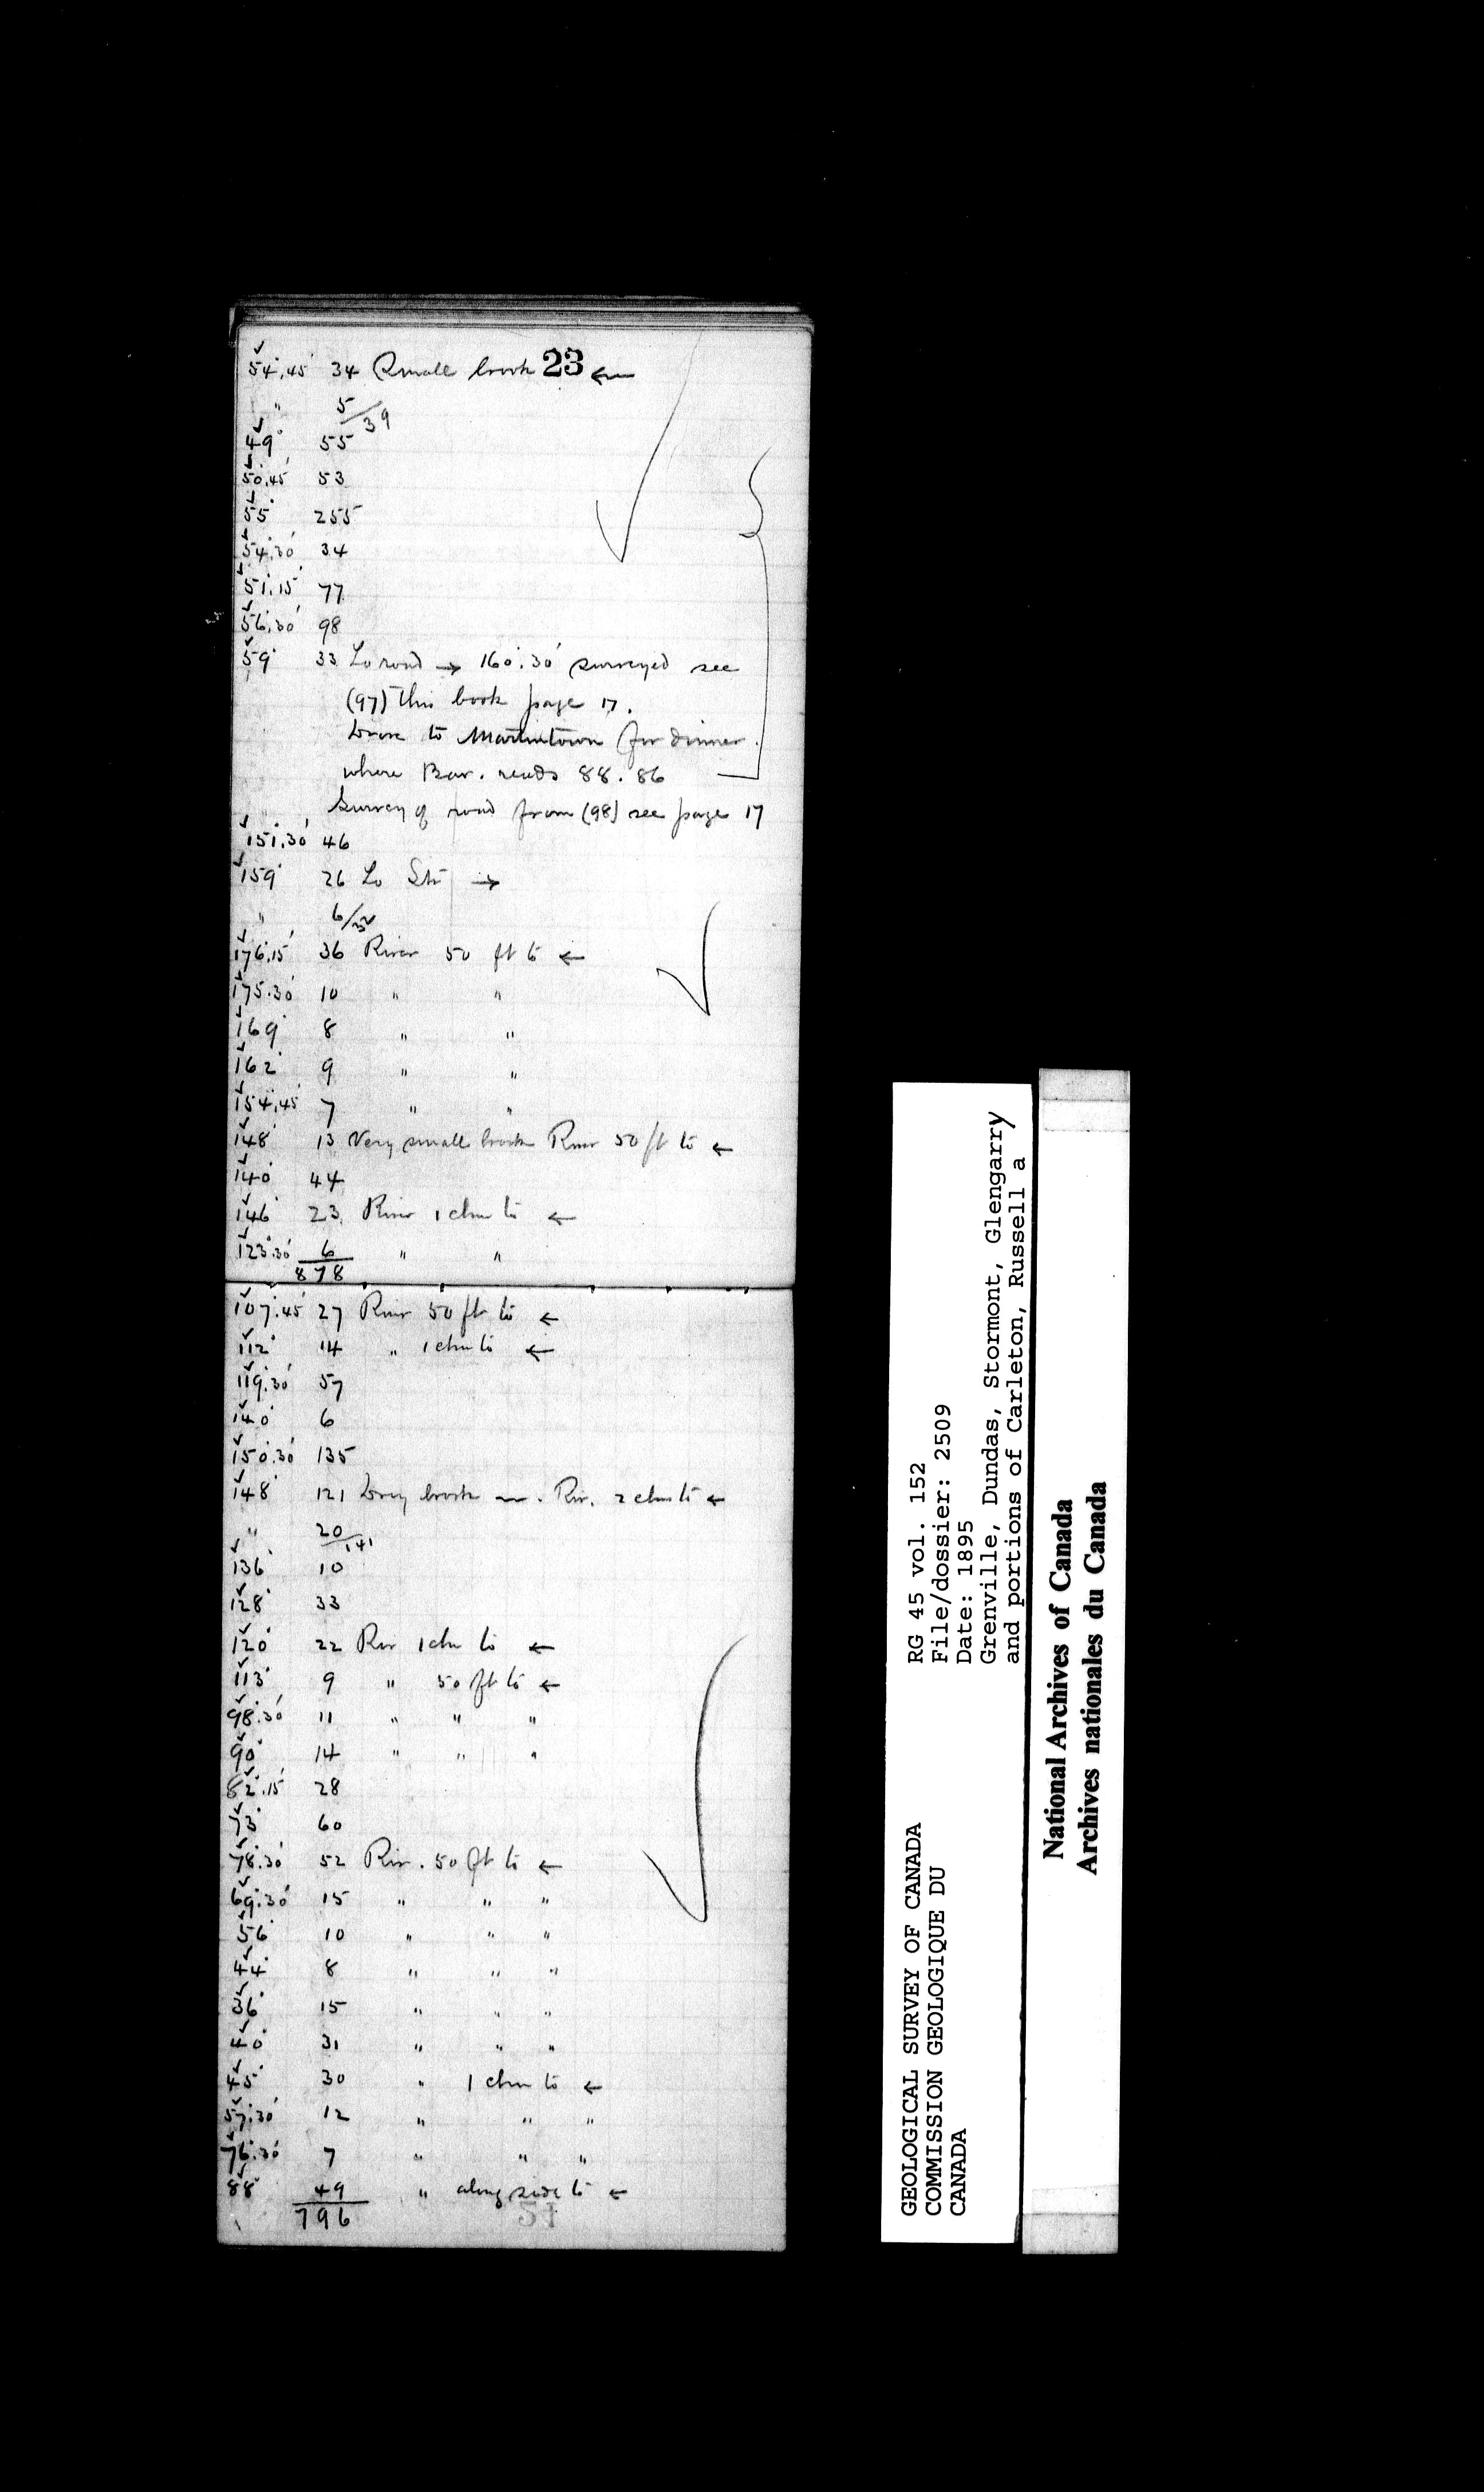 23
54°.45' 34 Small brook ←
" 5/39
49° 55
50°.45' 53
55° 255
54°.30' 34
51°.15' 77
56°.30' 98
59° 33 To road → 160°.30' surveyed see
(97) this book page 17.
Drove to Martintown for dinner.
where Bar. reads 88.86
Survey of road from (98) see page 17
151°.30' 46
159° 26 To Str →
" 6/32
176°.15' 36 River 50 ft to ←
175°.30' 10 " "
169° 8 " "
162° 9 " "
154°.45' 7 " "
148° 13 Very small brook River 50 ft to ←
140° 44
146° 23 River 1 chn to ←
123°.30' 6 " "
878
107°.45' 27 River 50 ft to ←
112° 14 " 1 chn to ←
119°.30' 57
140° 6
150°.30' 135
148° 121 brook Riv. 2 chns to ←
" 20/141
136° 10
128° 33
120° 22 Riv 1 chn to ←
113° 9 " 50 ft to ←
98°.30' 11 " " "
90° 14 " " "
82°.15' 28
73° 60
78°.30' 52 Riv. 50 ft to ←
69°.30' 15 " " "
56° 10 " " "
44° 8 " " "
36° 15 " " "
40° 31 " " "
45° 30 " 1 chn to ←
57°.30' 12 " " "
76°.30' 7 " " "
88° 49 " along side to ←
796
GEOLOGICAL SURVEY OF CANADA
COMMISSION GEOLOGIQUE DU
CANADA
RG 45 vol. 152
File/dossier: 2509
Date: 1895
Grenville, Dundas, Stormont, Glengarry
and portions of Carleton, Russell a
National Archives of Canada
Archives nationales du Canada